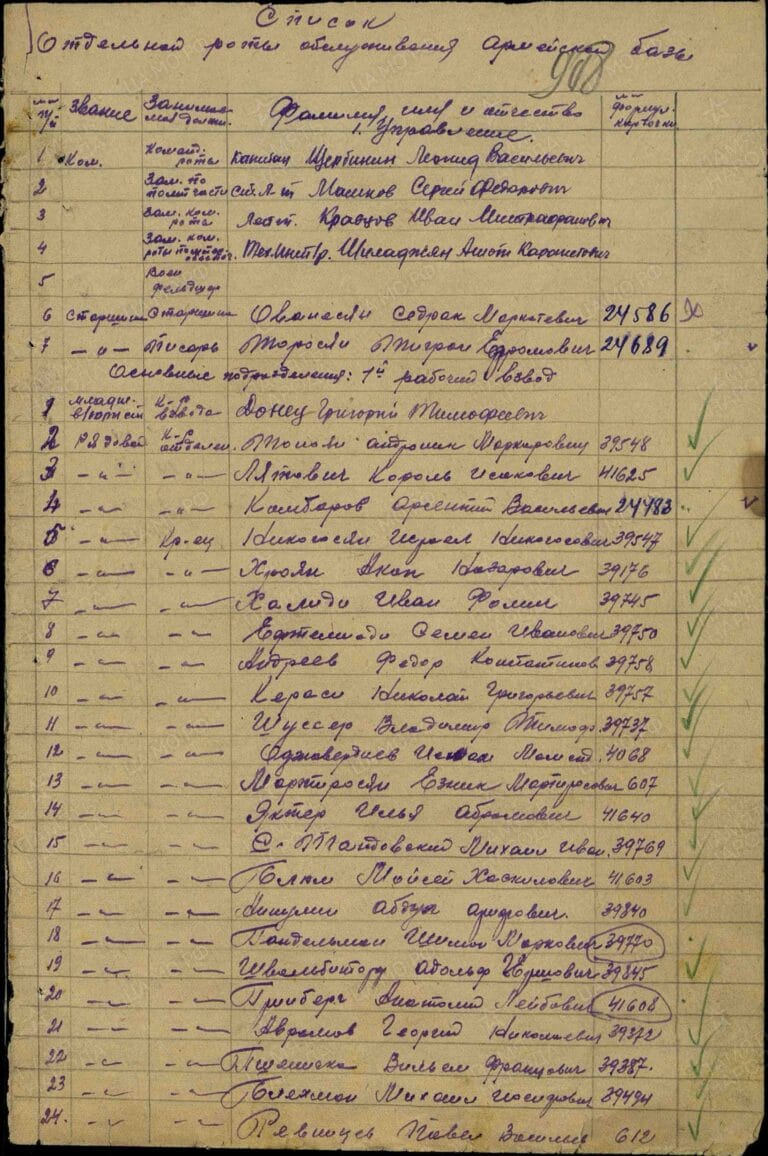 Список
Отдельной роты обслуживания армейской базы
908
№№ п/п Звание Занимаемая должн. Фамилия имя и отчество №№ формул. карточки
1. Управление.
1 Ком. Команд. роты капитан Щербинин Леонид Васильевич
2 Зам. по политчасти ст. л-т Машков Сергей Федорович
3 Зам. ком. роты Лейт. Кравцов Иван Митрофанович
4 Зам. ком. роты Техн. Шиладжян Ашот Карапетович
5 Воен фельдшер
6 Старшина Старшина Ованесян Седрак Маркатевич 24586
7 -"- Писарь Торосян Тигран Ефромович 24689
Основные подразделения: 1й рабочий взвод
1 младш. К-р взвода Донец Григорий Тимофеевич
2 Рядовой К-р отделен. Тоноян Маркарович 39548
3 -"- -"- Лятович Король Исакович 41625
4 -"- -"- Камбаров Арсентий Васильевич 24483
5 -"- Кр-ец Никогосян Исраел Никогосович 39547
6 -"- -"- Хроян Акоп Назарович 39176
7 -"- -"- Халиди Иван Фомич 39745
8 -"- -"- Семен Иванович 39750
9 -"- -"- Андреев Федор Константинов 39758
10 -"- -"- Кераси Николай Григорьевич 39757
11 -"- -"- Шуссер Владимир Тимоф. 39737
12 -"- -"- 4068
13 -"- -"- Мартиросян Езник Мартиросович 607
14 -"- -"- Яктер Илья Абрамович 41640
15 -"- -"- С. Тандовский Михаил Иван. 39769
16 -"- -"- Блюм Мойсей Хаскилович 41603
17 -"- -"- Абдул 39840
18 -"- -"- Гандельман Шимон Маркович 39770
19 -"- -"- Адольф 39845
20 -"- -"- Гринберг Анатолий Лейбович 41608
21 -"- -"- Аврамов Георгий Николаевич 39372
22 -"- -"- Пшеничка Вильем Францович 39387.
23 -"- -"- Блехман Михаил Иосифович 39494
24. -"- -"- Ревинцев Павел Василье 612